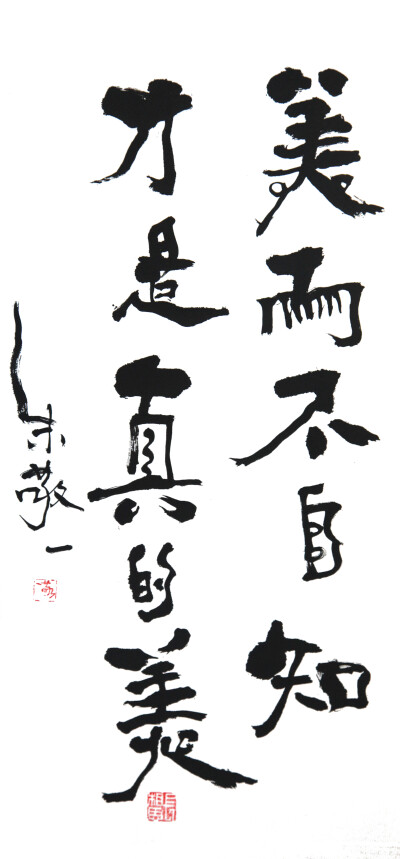 美而不自知
才是真的美
朱敬一